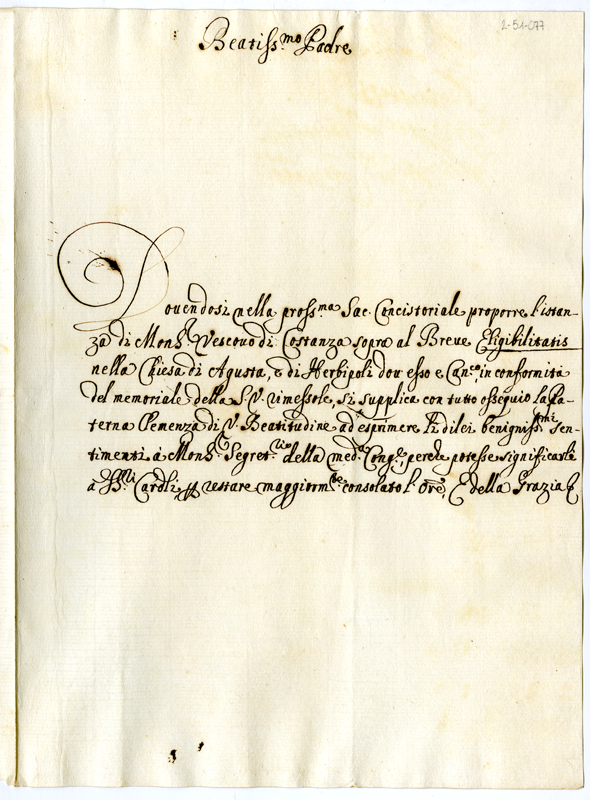 2-51-077
Beatiss.mo Padre
Dovendosi nella pross.ma Sac. Concistoriale proporre l'istan-
za di Mons.r Vescovo di Costanza sopra al Breve Eligibilitatis
nella Chiesa di Agusta, e di Herbipoli dov esso e Can.co in conformita
del memoriale della S.V. rimessole, si supplica con tutto ossequio la Pa-
terna Clemenza di V. Beatitudine ad esprimere li di lei benigniss.mi sen-
timenti á Mons.r Segret.rio della med.a Cong.e, perche potesse significarli
á SS.ri Card.li restare maggiorm.te consolato l'Ore, E della Grazia